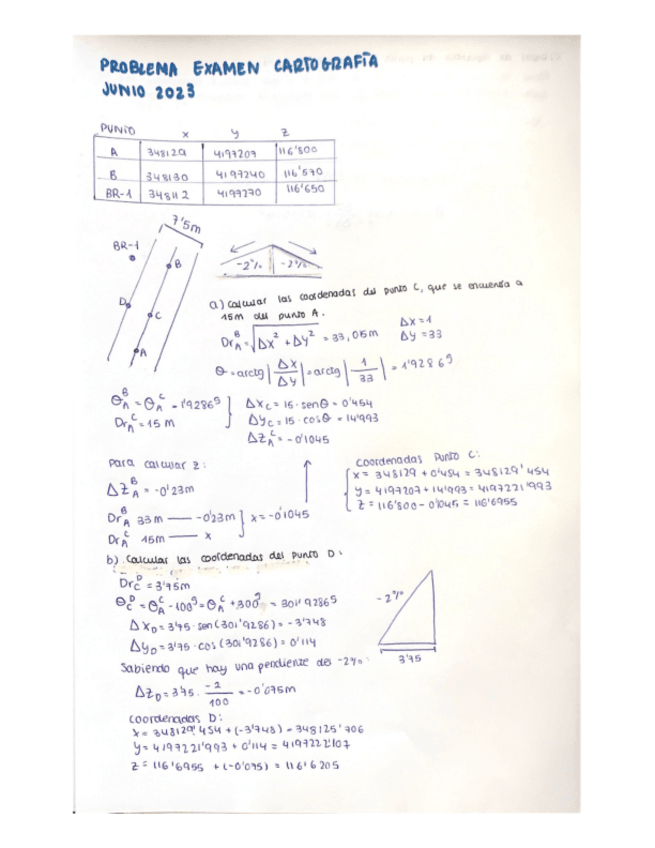 PROBLEMA EXAMEN CARTOGRAFÍA
JUNIO 2023
PUNTO x y z
A 348129 4197207 116'800
B 348130 4197240 116'570
BR-1 348112 4197270 116'650
7'5m
BR-1
B
D
C
A
-2% -2%
a) Calcular las coordenadas del punto C, que se encuentra a
15m del punto A.
Dr_A^B = √(Δx² + Δy²) = 33,015m Δx = 1
Δy = 33
θ = arctg |Δx/Δy| = arctg |1/33| = 1'9286^g
θ_A^B = θ_A^C = 1'9286^g
Dr_A^C = 15 m
Δx_C = 15 · senθ = 0'454
Δy_C = 15 · cosθ = 14'993
ΔZ_A^C = -0'1045
Para calcular z:
ΔZ_A^B = -0'23m
Dr_A^B 33m —— -0'23m } x = -0'1045
Dr_A^C 15m —— x
Coordenadas Punto C:
x = 348129 + 0'454 = 348129'454
y = 4197207 + 14'993 = 4197221'993
z = 116'800 - 0'1045 = 116'6955
b) Calcular las coordenadas del punto D:
Dr_C^D = 3'75m
θ_C^D = θ_A^C - 100^g = θ_A^C + 300^g = 301'9286^g
Δx_D = 3'75 · sen(301'9286) = -3'748
Δy_D = 3'75 · cos(301'9286) = 0'114
-2%
3'75
Sabiendo que hay una pendiente del -2%:
ΔZ_D = 3'75 · -2/100 = -0'075m
Coordenadas D:
x = 348129'454 + (-3'748) = 348125'706
y = 4197221'993 + 0'114 = 4197222'107
z = 116'6955 + (-0'075) = 116'6205